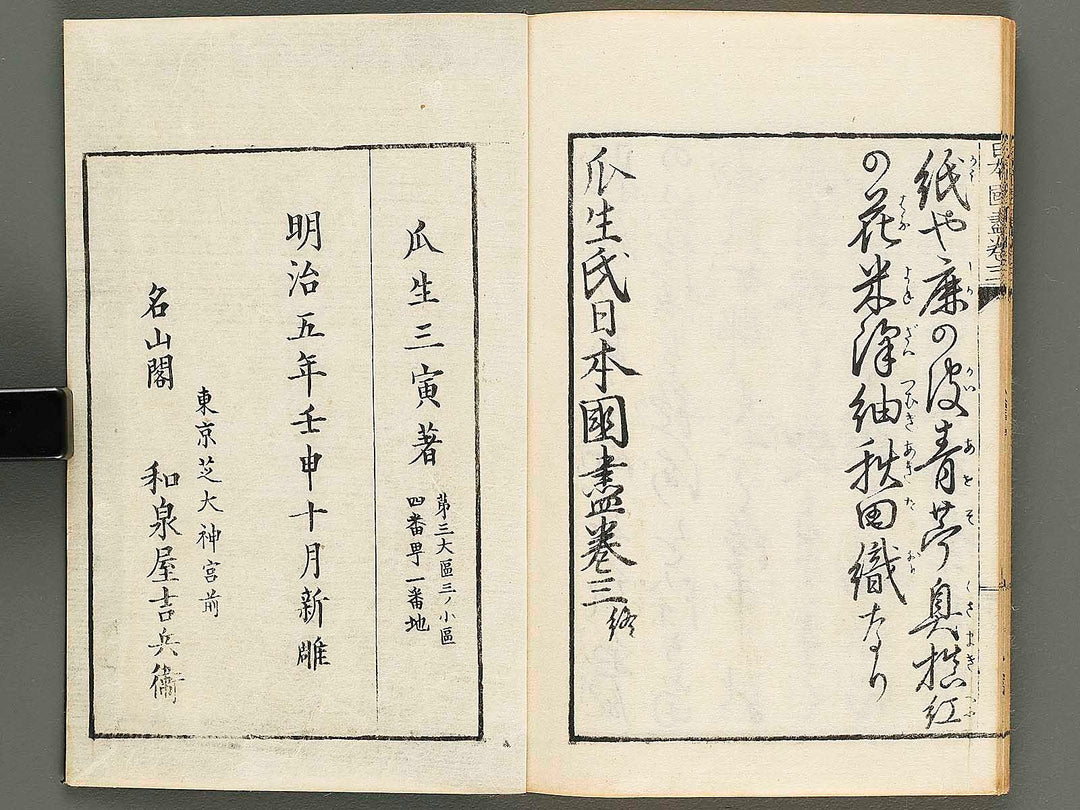 日本國盡卷三
紙や麻の皮青苧臭槙紅
の花米漆紬秋田織なり
瓜生氏日本國盡卷三終
瓜生三寅著
第三大區三ノ小區
四番甼一番地
明治五年壬申十月新雕
東京芝大神宮前
名山閣 和泉屋吉兵衞